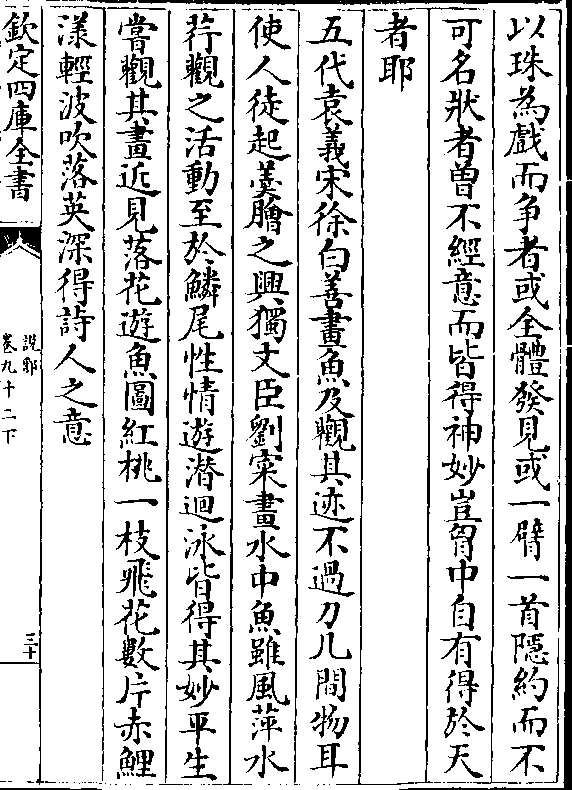 以珠為戲而争者或全體發見或一臂一首隱約而不
可名狀者曽不經意而皆得神妙豈胷中自有得於天
者耶
五代袁義宋徐白善畫魚及觀其迹不過刀几間物耳
使人徒起羮膾之興獨文臣劉寀畫水中魚雖風萍水
荇觀之活動至於鱗尾性情遊潛迴泳皆得其妙平生
嘗觀其畫近見落花遊魚圖紅桃一枝飛花數片赤鯉
漾輕波吹落英深得詩人之意
欽定四庫全書
說郛
卷九十二下
三十